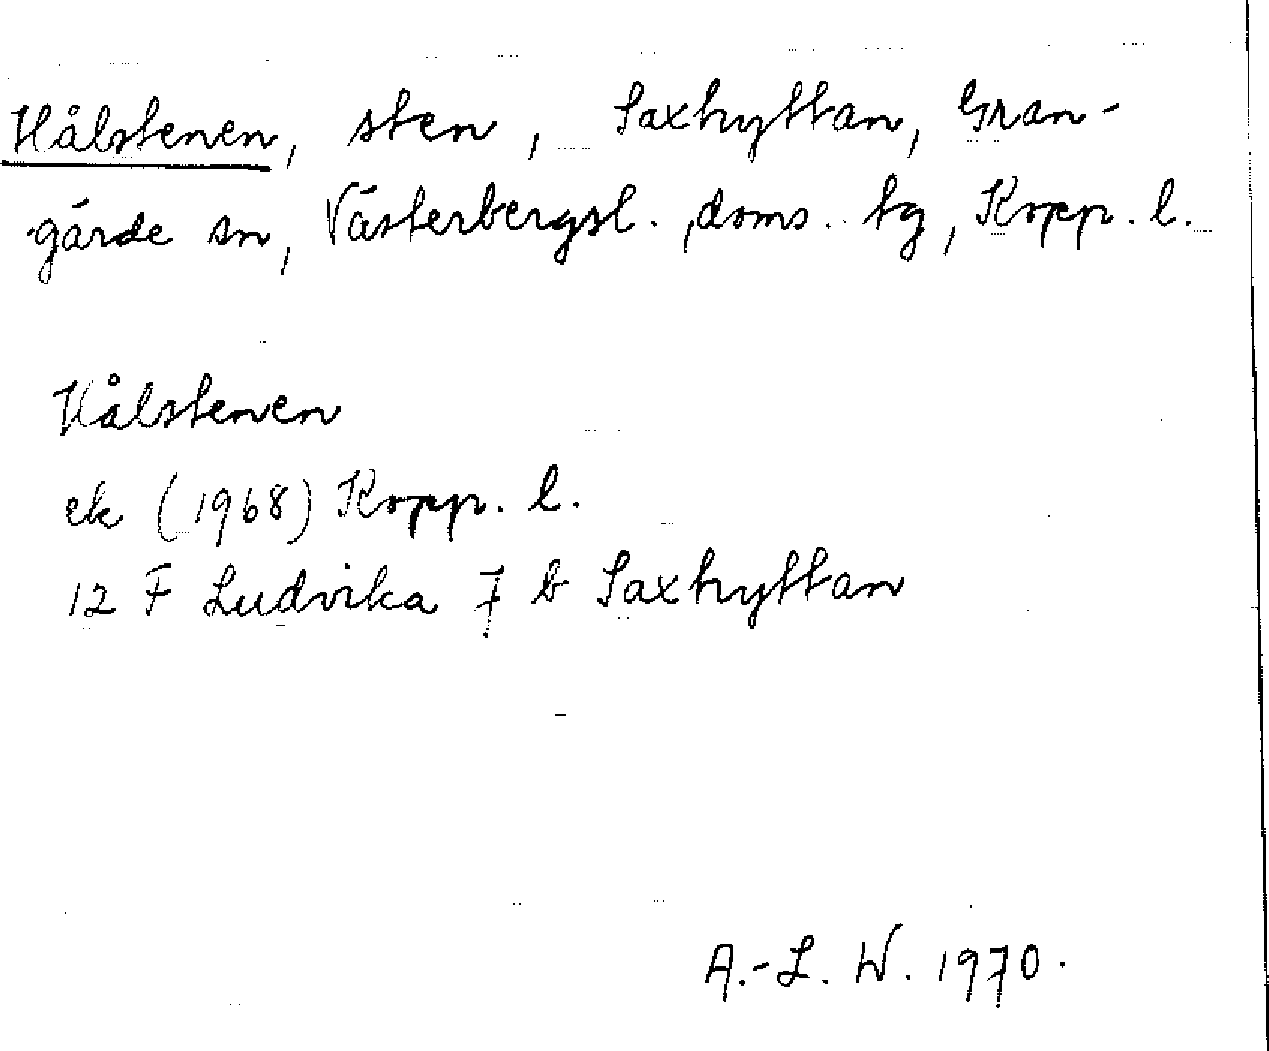 Hålstenen, sten, Saxhyttan, Gran-
gärde sn, Västerbergsl. doms. tg, Kopp. l.
Hålstenen
ek (1968) Kopp. l.
12 F Ludvika 7 b Saxhyttan
A.-L. W. 1970.